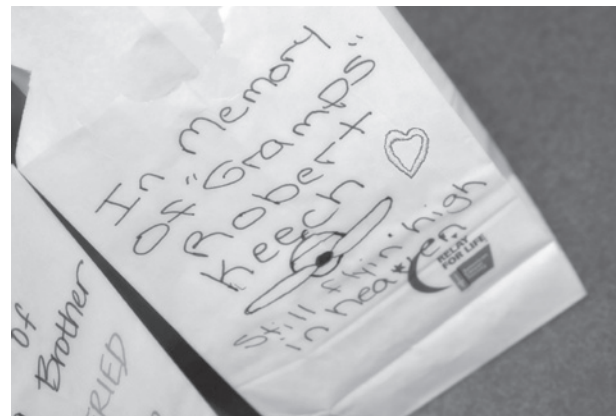 In Memory
Of "Gramps"
Robert
Keech
Still flyin' high
in heaven
RELAY
FOR LIFE
of
Brother